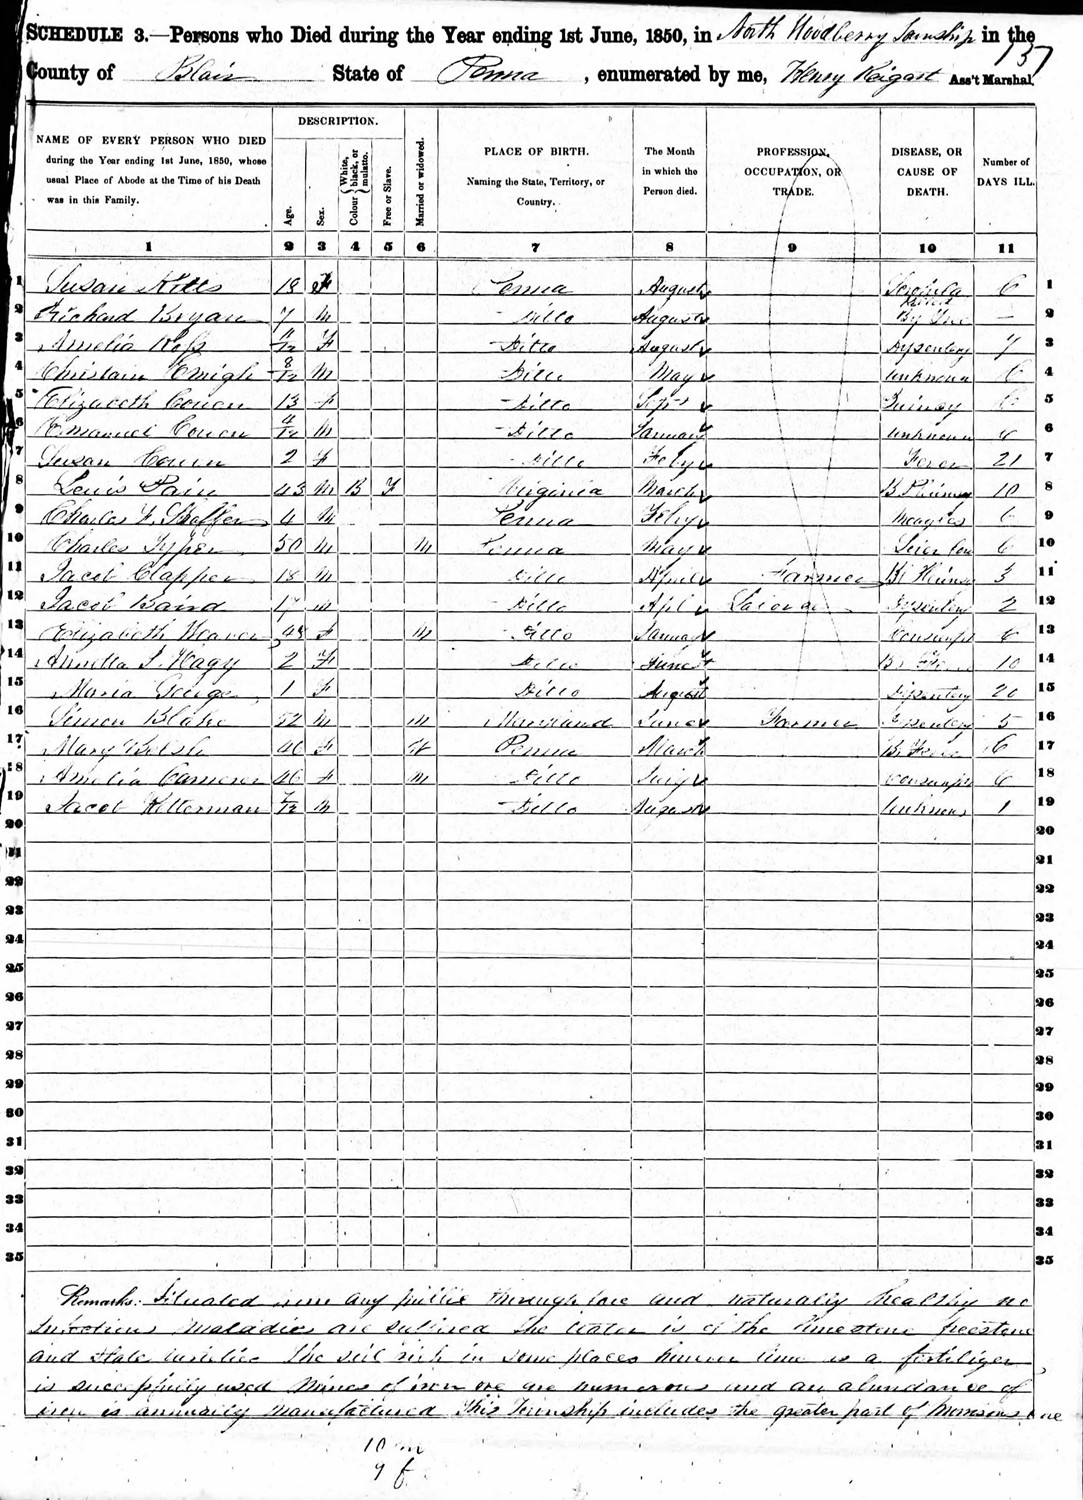 SCHEDULE 3.—Persons who Died during the Year ending 1st June, 1850, in North Woodberry Township in the
137
County of Blair State of Penna, enumerated by me, Henry Reigart Ass't Marshal.
NAME OF EVERY PERSON WHO DIED during the Year ending 1st June, 1850, whose usual Place of Abode at the Time of his Death was in this Family.
DESCRIPTION.
Age.
Sex.
Colour { White, black, or mulatto.
Free or Slave.
Married or widowed.
PLACE OF BIRTH. Naming the State, Territory, or Country.
The Month in which the Person died.
PROFESSION, OCCUPATION, OR TRADE.
DISEASE, OR CAUSE OF DEATH.
Number of DAYS ILL.
1 2 3 4 5 6 7 8 9 10 11
1 Susan 18 F Penna August 6 1
2 Richard Bryan 7 M Ditto August Killed By Tree — 2
3 Amelia Ross 11/12 F Ditto August Dysentery 7 3
4 Christain Emigh 8/12 M Ditto May unknown 6 4
5 Elizabeth Cowen 13 F Ditto Sept Quinsy 6 5
6 Emanuel Cowen 4/12 M Ditto January unknown 6
7 Susan Cowen 2 F Ditto Feby Fever 21 7
8 Lewis Pain 43 M B F Virginia March 10 8
9 Charles F. Shoffer 4 M Penna Feby Measles 6 9
10 Charles Typer 50 M M Penna May 6 10
11 Jacob Clapper 18 M Ditto April Farmer 3 11
12 Jacob Baird 17 M Ditto Apl Laborer Dysentery 2 12
13 Elizabeth Weaver 48 F M Ditto January consumpt 6 13
14 2 F Ditto June 10 14
15 Maria George 1 F Ditto August Dysentery 20 15
16 Simon Blake 52 M M Maryland June Farmer Dysentery 5 16
17 Mary 40 F W Penna March 6 17
18 Amelia Cameron 40 F M Ditto July consumpt 6 18
19 Jacob Kellerman 7/12 M Ditto August Unknown 1 19
20 20
21 21
22 22
23 23
24 24
25 25
26 26
27 27
28 28
29 29
30 30
31 31
32 32
33 33
34 34
35 35
Remarks: Situated any public thoroughfare and naturally healthy no
infectious maladies are suffered The water is of the limestone freestone
and slate varieties The soil rich in some places however lime is a fertilizer
is successfully used Mines of iron ore are numerous and an abundance of
iron is annually manufactured This Township includes the greater part of Morrisons Cove
10 m
9 f